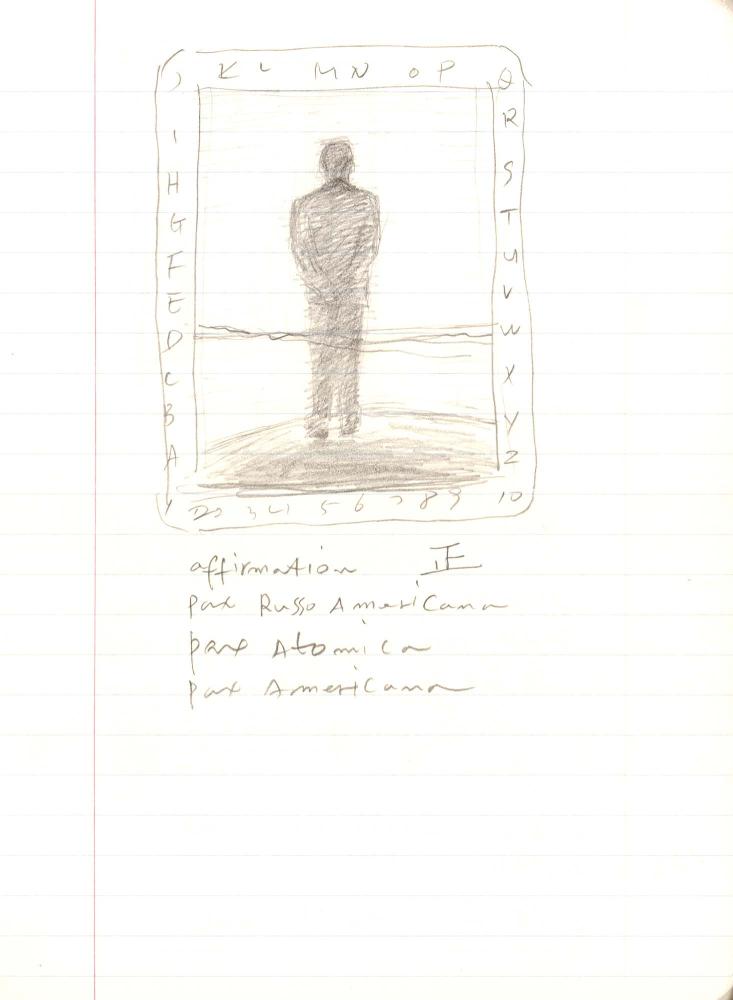 J K L M N O P Q
I R
H S
G T
F U
E V
D W
C X
B Y
A Z
1 2 3 4 5 6 7 8 9 10
affirmation 正
pax Russo Americana
pax Atomica
pax Americana